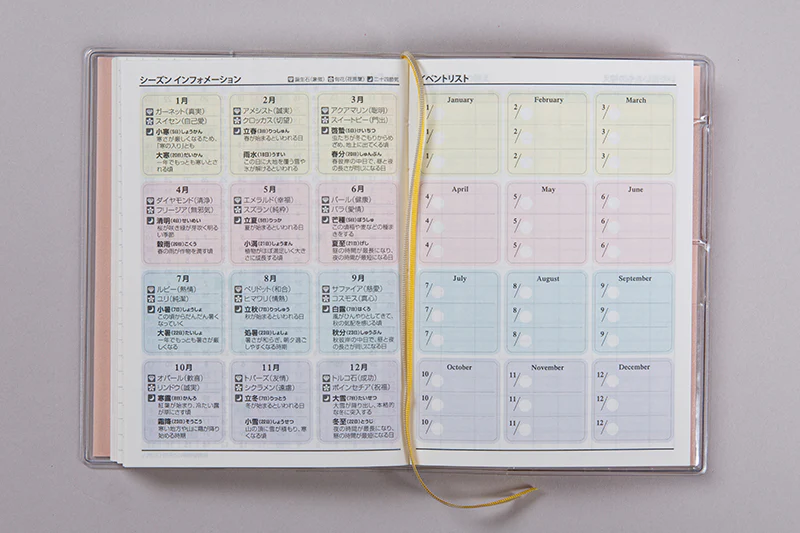 シーズン インフォメーション
誕生石(象徴) 旬花(花言葉) 二十四節気
1月
ガーネット(真実)
スイセン(自己愛)
小寒(5日)しょうかん
寒さが厳しくなるため、
「寒の入り」とも
大寒(20日)だいかん
一年でもっとも寒いとさ
れる日
2月
アメシスト(誠実)
クロッカス(切望)
立春(3日)りっしゅん
春が始まるといわれる日
雨水(18日)うすい
この日に大地を覆う雪や
氷が解けるといわれる
3月
アクアマリン(聡明)
スイートピー(門出)
啓蟄(5日)けいちつ
虫たちが冬ごもりからめ
ざめ、地上に出てくる頃
春分(20日)しゅんぶん
春彼岸の中日で、昼と夜
の長さが同じになる日
4月
ダイヤモンド(清浄)
フリージア(無邪気)
清明(4日)せいめい
桜が咲き緑が芽吹く明る
い季節
穀雨(20日)こくう
春の雨が作物を潤す頃
5月
エメラルド(幸福)
スズラン(純粋)
立夏(5日)りっか
夏が始まるといわれる日
小満(21日)しょうまん
植物がほぼ満足いく大き
さに成長する頃
6月
パール(健康)
バラ(愛情)
芒種(5日)ぼうしゅ
この頃稲や麦などの種ま
きをする
夏至(21日)げし
昼の時間が最長になり、
夜の時間が最短になる日
7月
ルビー(熱情)
ユリ(純潔)
小暑(7日)しょうしょ
この頃からだんだん暑く
なっていく
大暑(22日)たいしょ
一年でもっとも暑さが厳
しくなる
8月
ペリドット(和合)
ヒマワリ(情熱)
立秋(7日)りっしゅう
秋が始まるといわれる日
処暑(23日)しょしょ
暑さが和らぎ、朝夕過ご
しやすくなる時期
9月
サファイア(慈愛)
コスモス(真心)
白露(7日)はくろ
風がひんやりとしてきて、
秋の気配を感じる頃
秋分(23日)しゅうぶん
秋彼岸の中日で、昼と夜
の長さが同じになる日
10月
オパール(歓喜)
リンドウ(誠実)
寒露(8日)かんろ
紅葉が始まり、冷たい露
が草にさす頃
霜降(23日)そうこう
寒い地方や山に霜が降り
始める時期
11月
トパーズ(友情)
シクラメン(遠慮)
立冬(7日)りっとう
冬が始まるといわれる日
小雪(22日)しょうせつ
山の頂に雪が積もり、寒
くなる頃
12月
トルコ石(成功)
ポインセチア(祝福)
大雪(7日)たいせつ
大雪が降り出し、本格的
な冬に突入する
冬至(22日)とうじ
夜の時間が最長になり、
昼の時間が最短になる日
イベントリスト
January
1/
1/
1/
February
2/
2/
2/
March
3/
3/
3/
April
4/
4/
4/
May
5/
5/
5/
June
6/
6/
6/
July
7/
7/
7/
August
8/
8/
8/
September
9/
9/
9/
October
10/
10/
10/
November
11/
11/
11/
December
12/
12/
12/